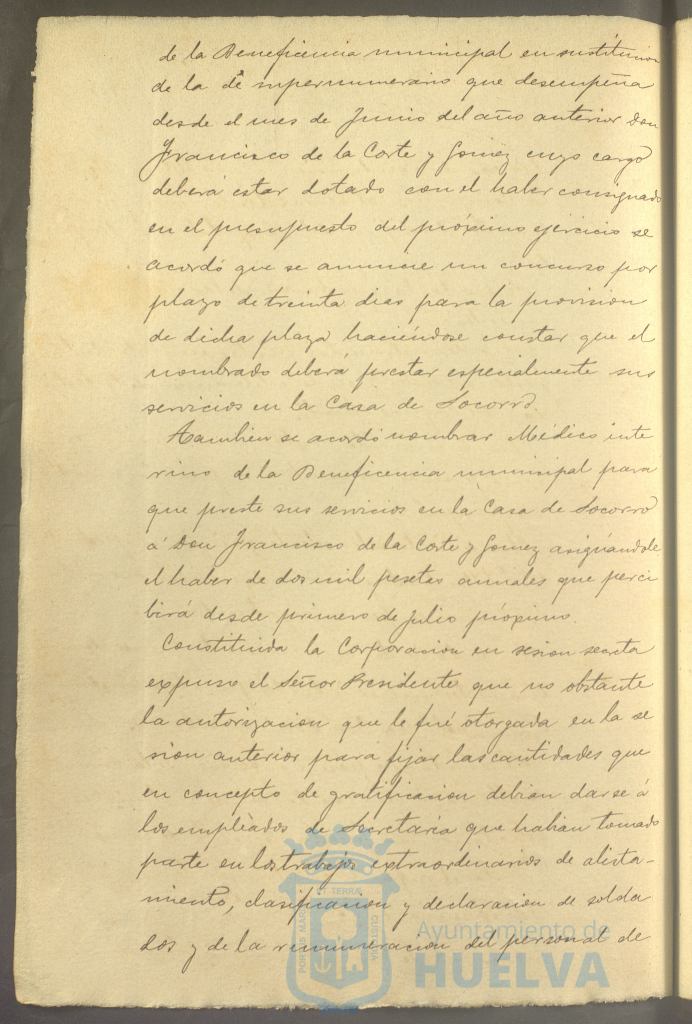 de la Beneficencia municipal en sustitucion
de la de supernumerario que desempeña
desde el mes de Junio del año anterior Don
Francisco de la Corte y Gomez cuyo cargo
deberá estar dotado con el haber consignado
en el presupuesto del próximo ejercicio se
acordó que se anuncie un concurso por
plazo de treinta dias para la provision
de dicha plaza haciéndose constar que el
nombrado deberá prestar especialmente sus
servicios en la Casa de Socorro.
Tambien se acordó nombrar Médico inte
rino de la Beneficencia municipal para
que preste sus servicios en la Casa de Socorro
á Don Francisco de la Corte y Gomez asignándole
el haber de dos mil pesetas anuales que perci
birá desde primero de Julio próximo.
Constituida la Corporacion en sesion secreta
expuso el Señor Presidente que no obstante
la autorizacion que le fué otorgada en la se
sion anterior para fijar las cantidades que
en concepto de gratificacion debian darse á
los empleados de Secretaría que habian tomado
parte en los trabajos extraordinarios de alista-
miento, clasificacion y declaracion de solda
dos y de la remuneracion del personal de
PORTUS MARIS ET TERRÆ CUSTODIA
Ayuntamiento de
HUELVA